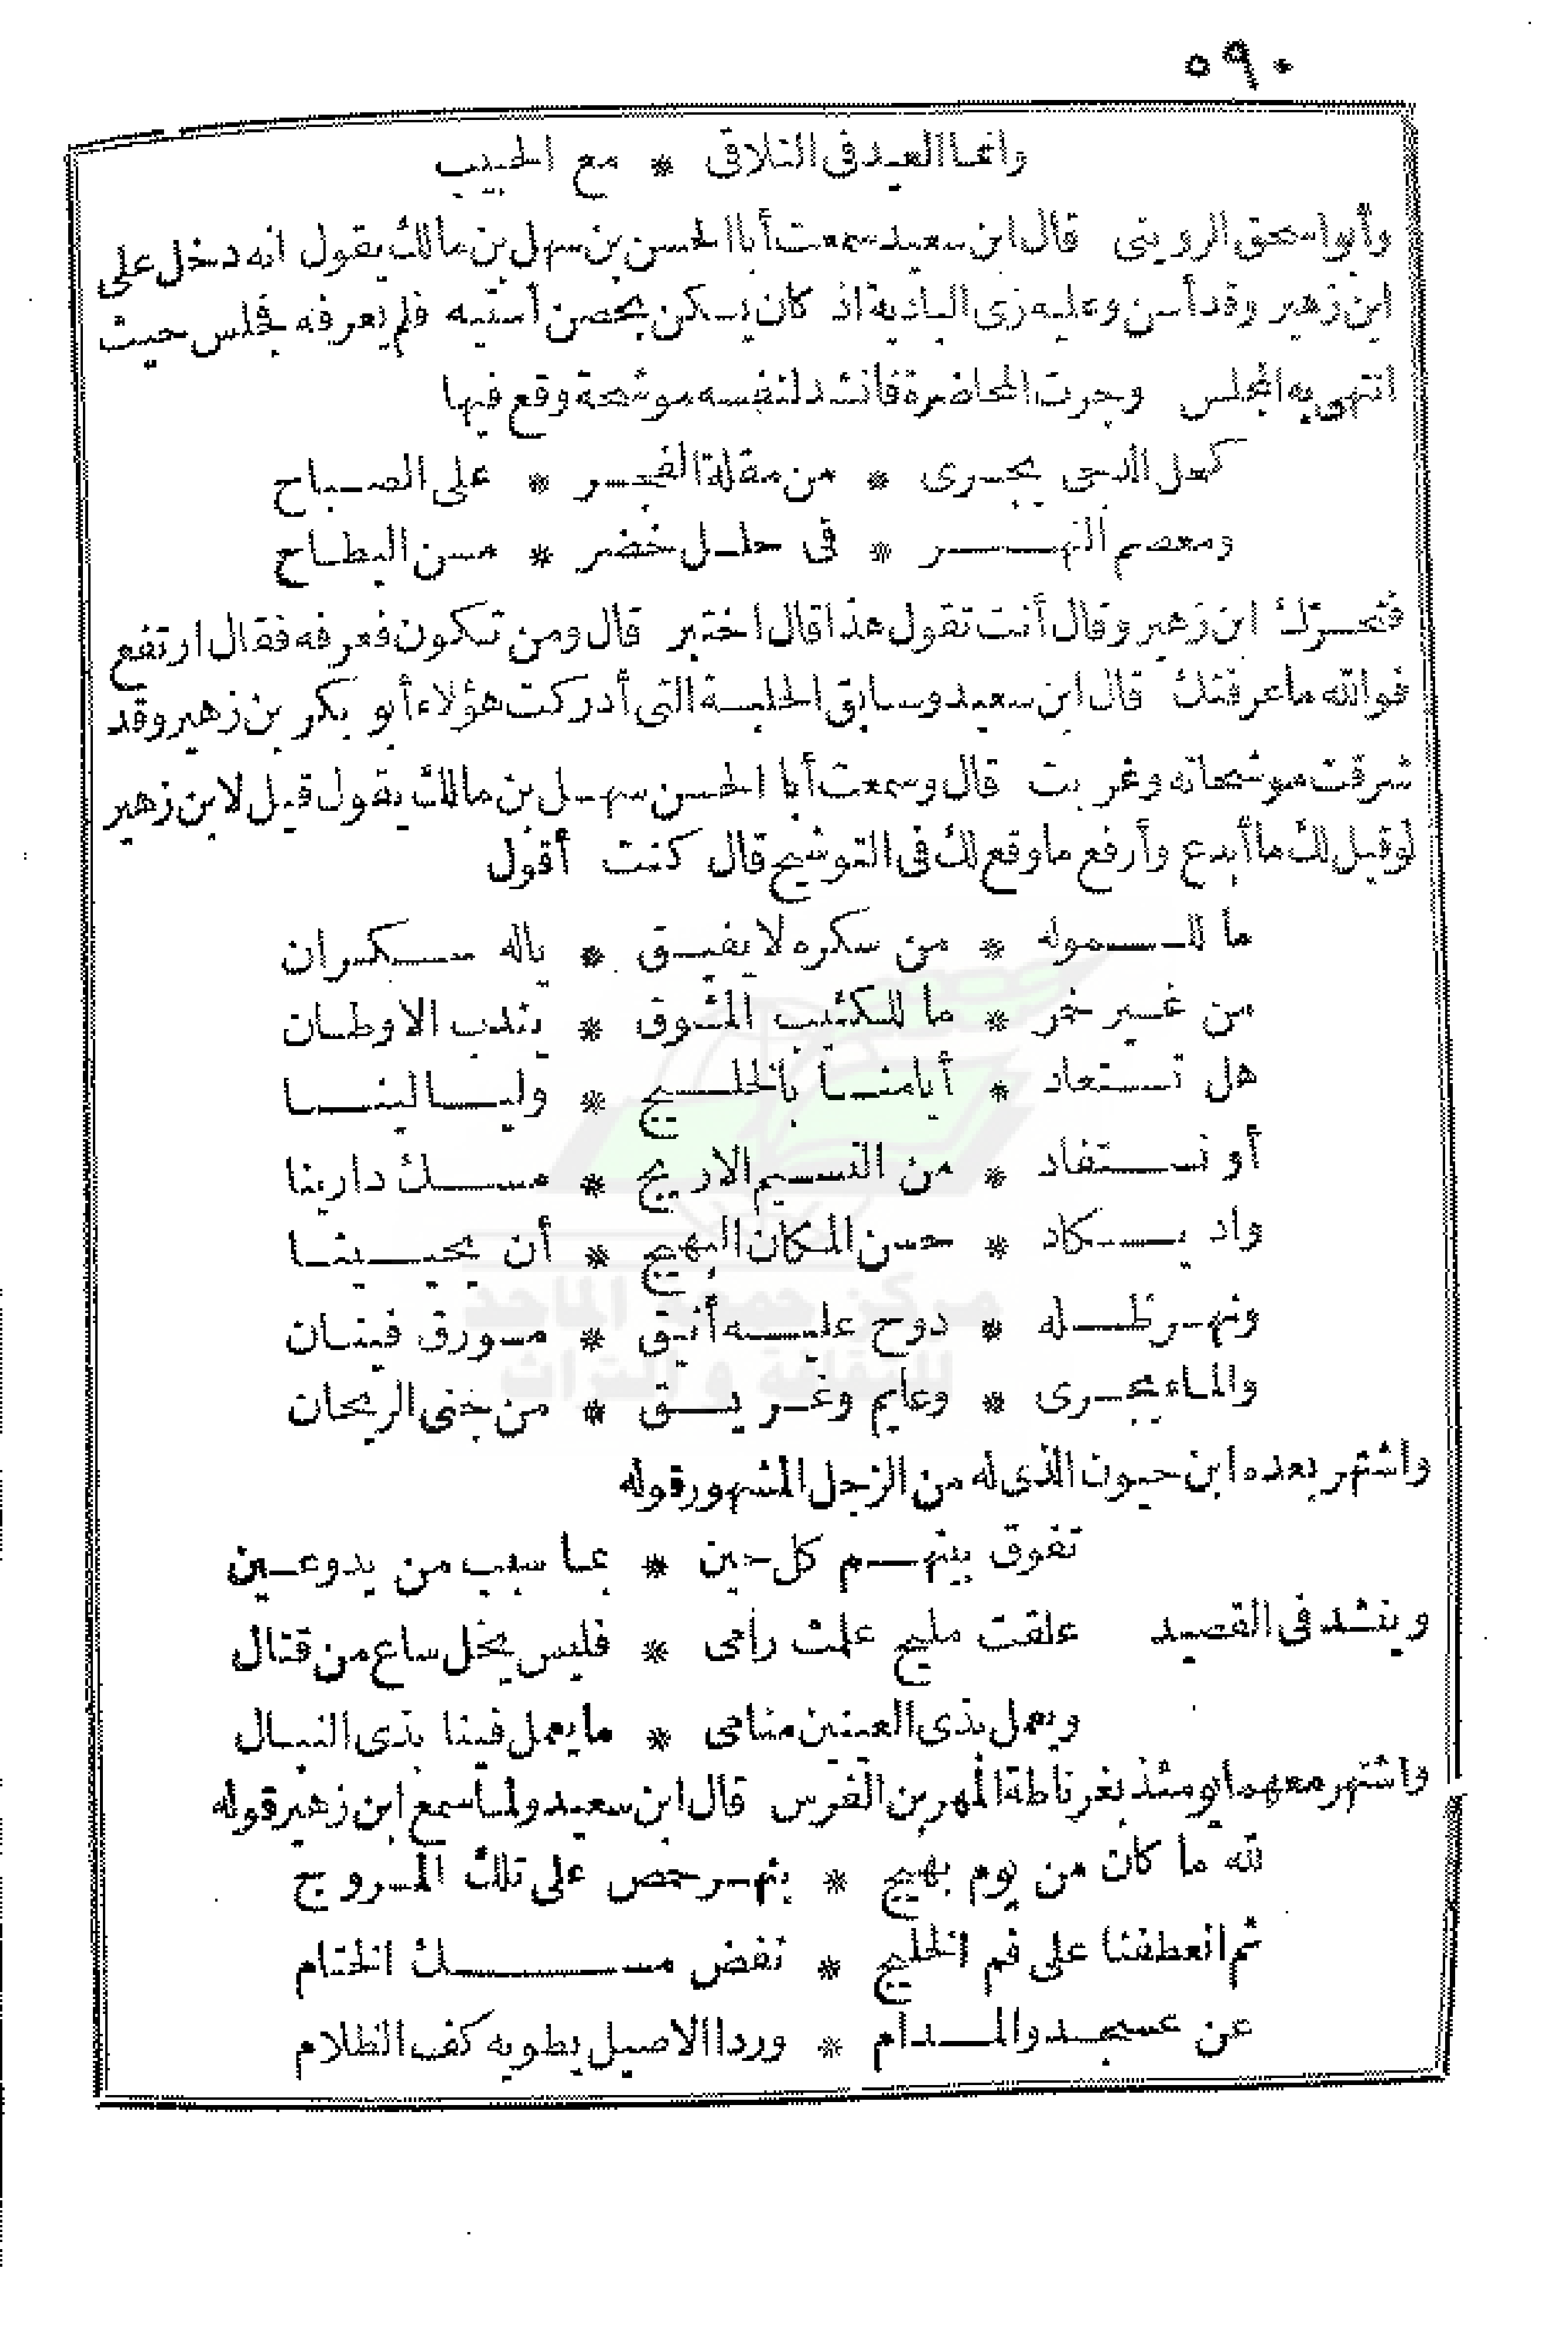 ٥٩٠
وانما العيد فى التلاقى * مع الحبيب
وأبو اسحق الرويتى قال ابن سعيد سمعت أبا الحسن بن سهل بن مالك يقول انه دخل على
ابن زهير وقد أسن وعليه زى البادية اذ كان يسكن بحصن أستبه فلم يعرفه فجلس حيث
انتهى به المجلس وجرت المحاضرة فانشد لنفسه موشحة وقع فيها
كحل الدجى يجرى * من مقلة الفجر * على الصباح
ومعصم النهر * فى حلل خضر * من البطاح
فتحرّك ابن زهير وقال أنت تقول هذا قال اختبر قال ومن تكون فعرفه فقال ارتفع
فوالله ما عرفتك قال ابن سعيد وسابق الحلبة التى أدركت هؤلاء أبو بكر بن زهير وقد
شرقت موشحاته وغربت قال وسمعت أبا الحسن سهل بن مالك يقول قيل لابن زهير
لو قيل لك ما أبدع وأرفع ما وقع لك فى التوشيح قال كنت أقول
ما للموله * من سكره لا يفيق * ياله سكران
من غير خمر * ما للكئيب المشوق * يندب الاوطان
هل تستعاد * أيامنا بالخليج * وليالينا
أو نستفاد * من النسيم الاريج * مسك دارينا
واد يكاد * حسن المكان البهيج * أن يحيينا
ونهر ظله * دوح عليه أنيق * مورق فينان
والماء يجرى * وعايم وغريق * من جنى الريحان
واشتهر بعده ابن حيون الذى له من الزجل المشهور قوله
تفوق بينهم كل حين * بما سبب من يد وعين
وينشد فى القصيد علقت مليح علمت رامى * فليس يخل ساع من قتال
ويعمل بذى العينين منامى * ما يعمل فينا بذى النبال
واشتهر معهما يومئذ بغرناطة المهر بن الفرس قال ابن سعيد ولما سمع ابن زهير قوله
لله ما كان من يوم بهيج * بنهر حمص على تلك المروج
ثم انعطفنا على فم الخليج * نفض مسك الختام
عن عسجد والمدام * وردا الاصيل يطويه كف الظلام
مركز جمعة الماجد
للثقافة و التراث